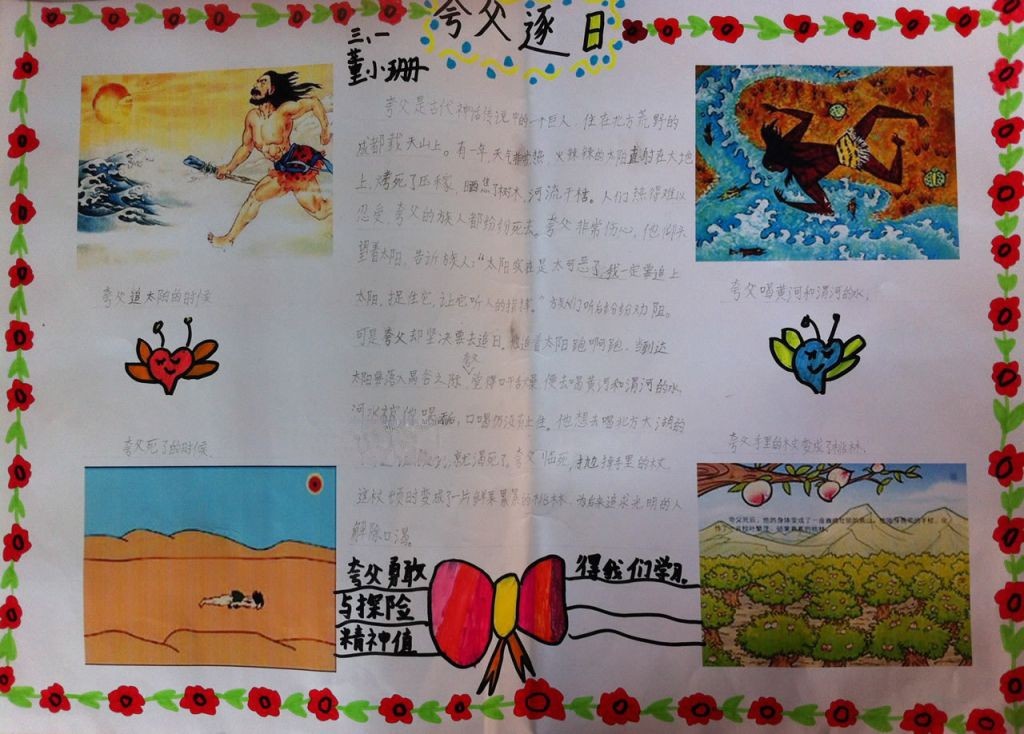 夸父逐日
三、一
董小珊
夸父是古代神话传说中的一个巨人,住在北方荒野的
成都载天山上。有一年,天气非常热,火辣辣的太阳直射在大地
上,烤死了庄稼,晒焦了树木,河流干枯。人们热得难以
忍受,夸父的族人都纷纷死去。夸父非常伤心,他仰头
望着太阳,告诉族人:“太阳实在是太可恶了,我一定要追上
太阳,捉住它,让它听人的指挥。”族人们听后纷纷劝阻。
可是夸父却坚决要去追日。他追着太阳跑啊跑,当到达
太阳要落入禺谷之际,夸父觉得口干舌燥,便去喝黄河和渭河的水,
河水被他喝干后,口渴仍没有止住。他想去喝北方大湖的
就渴死了。夸父临死,抛掉手里的杖
这杖顿时变成了一片鲜果累累的桃林,为后来追求光明的人
解除口渴。
夸父追太阳的时候
夸父喝黄河和渭河的水,
夸父死了的时候
夸父手里的杖变成了桃林。
夸父勇敢
与探险
精神值
得我们学习。